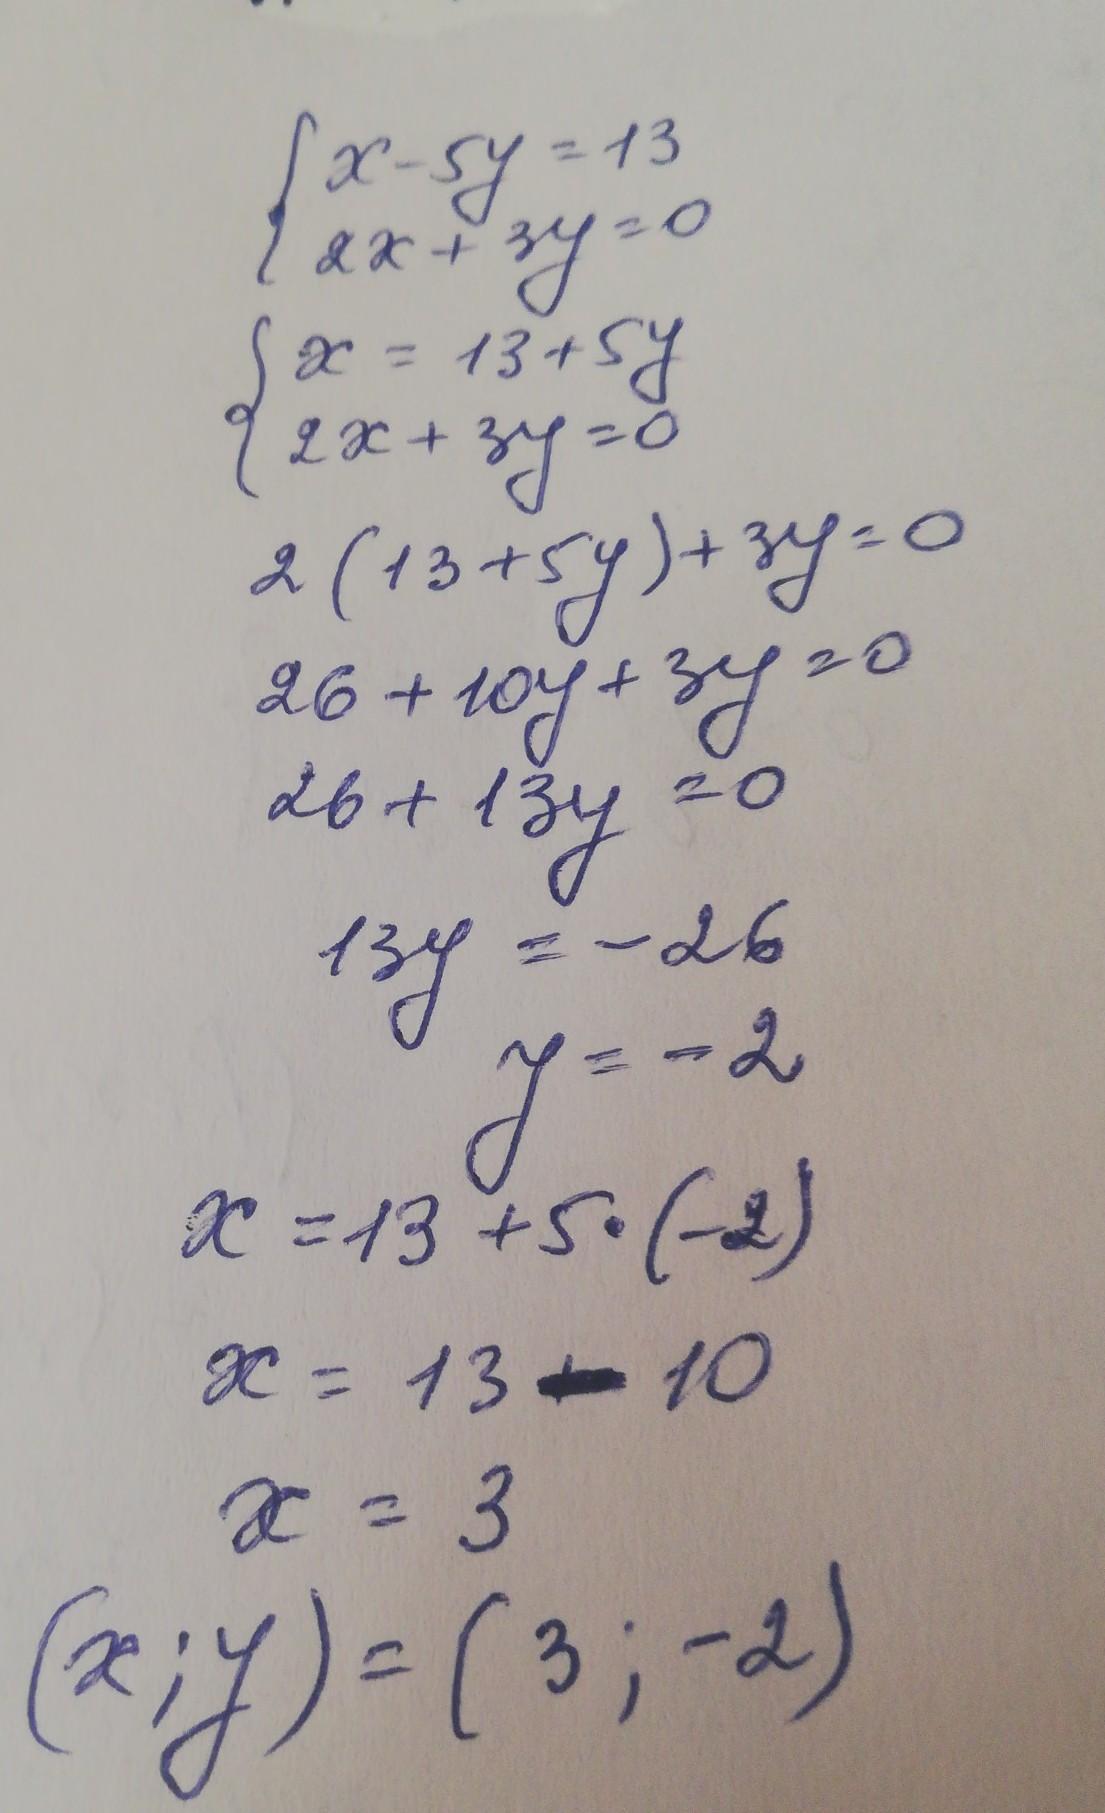 { x - 5y = 13
2x + 3y = 0
{ x = 13 + 5y
2x + 3y = 0
2 (13 + 5y) + 3y = 0
26 + 10y + 3y = 0
26 + 13y = 0
13y = -26
y = -2
x = 13 + 5 · (-2)
x = 13 - 10
x = 3
(x; y) = (3; -2)